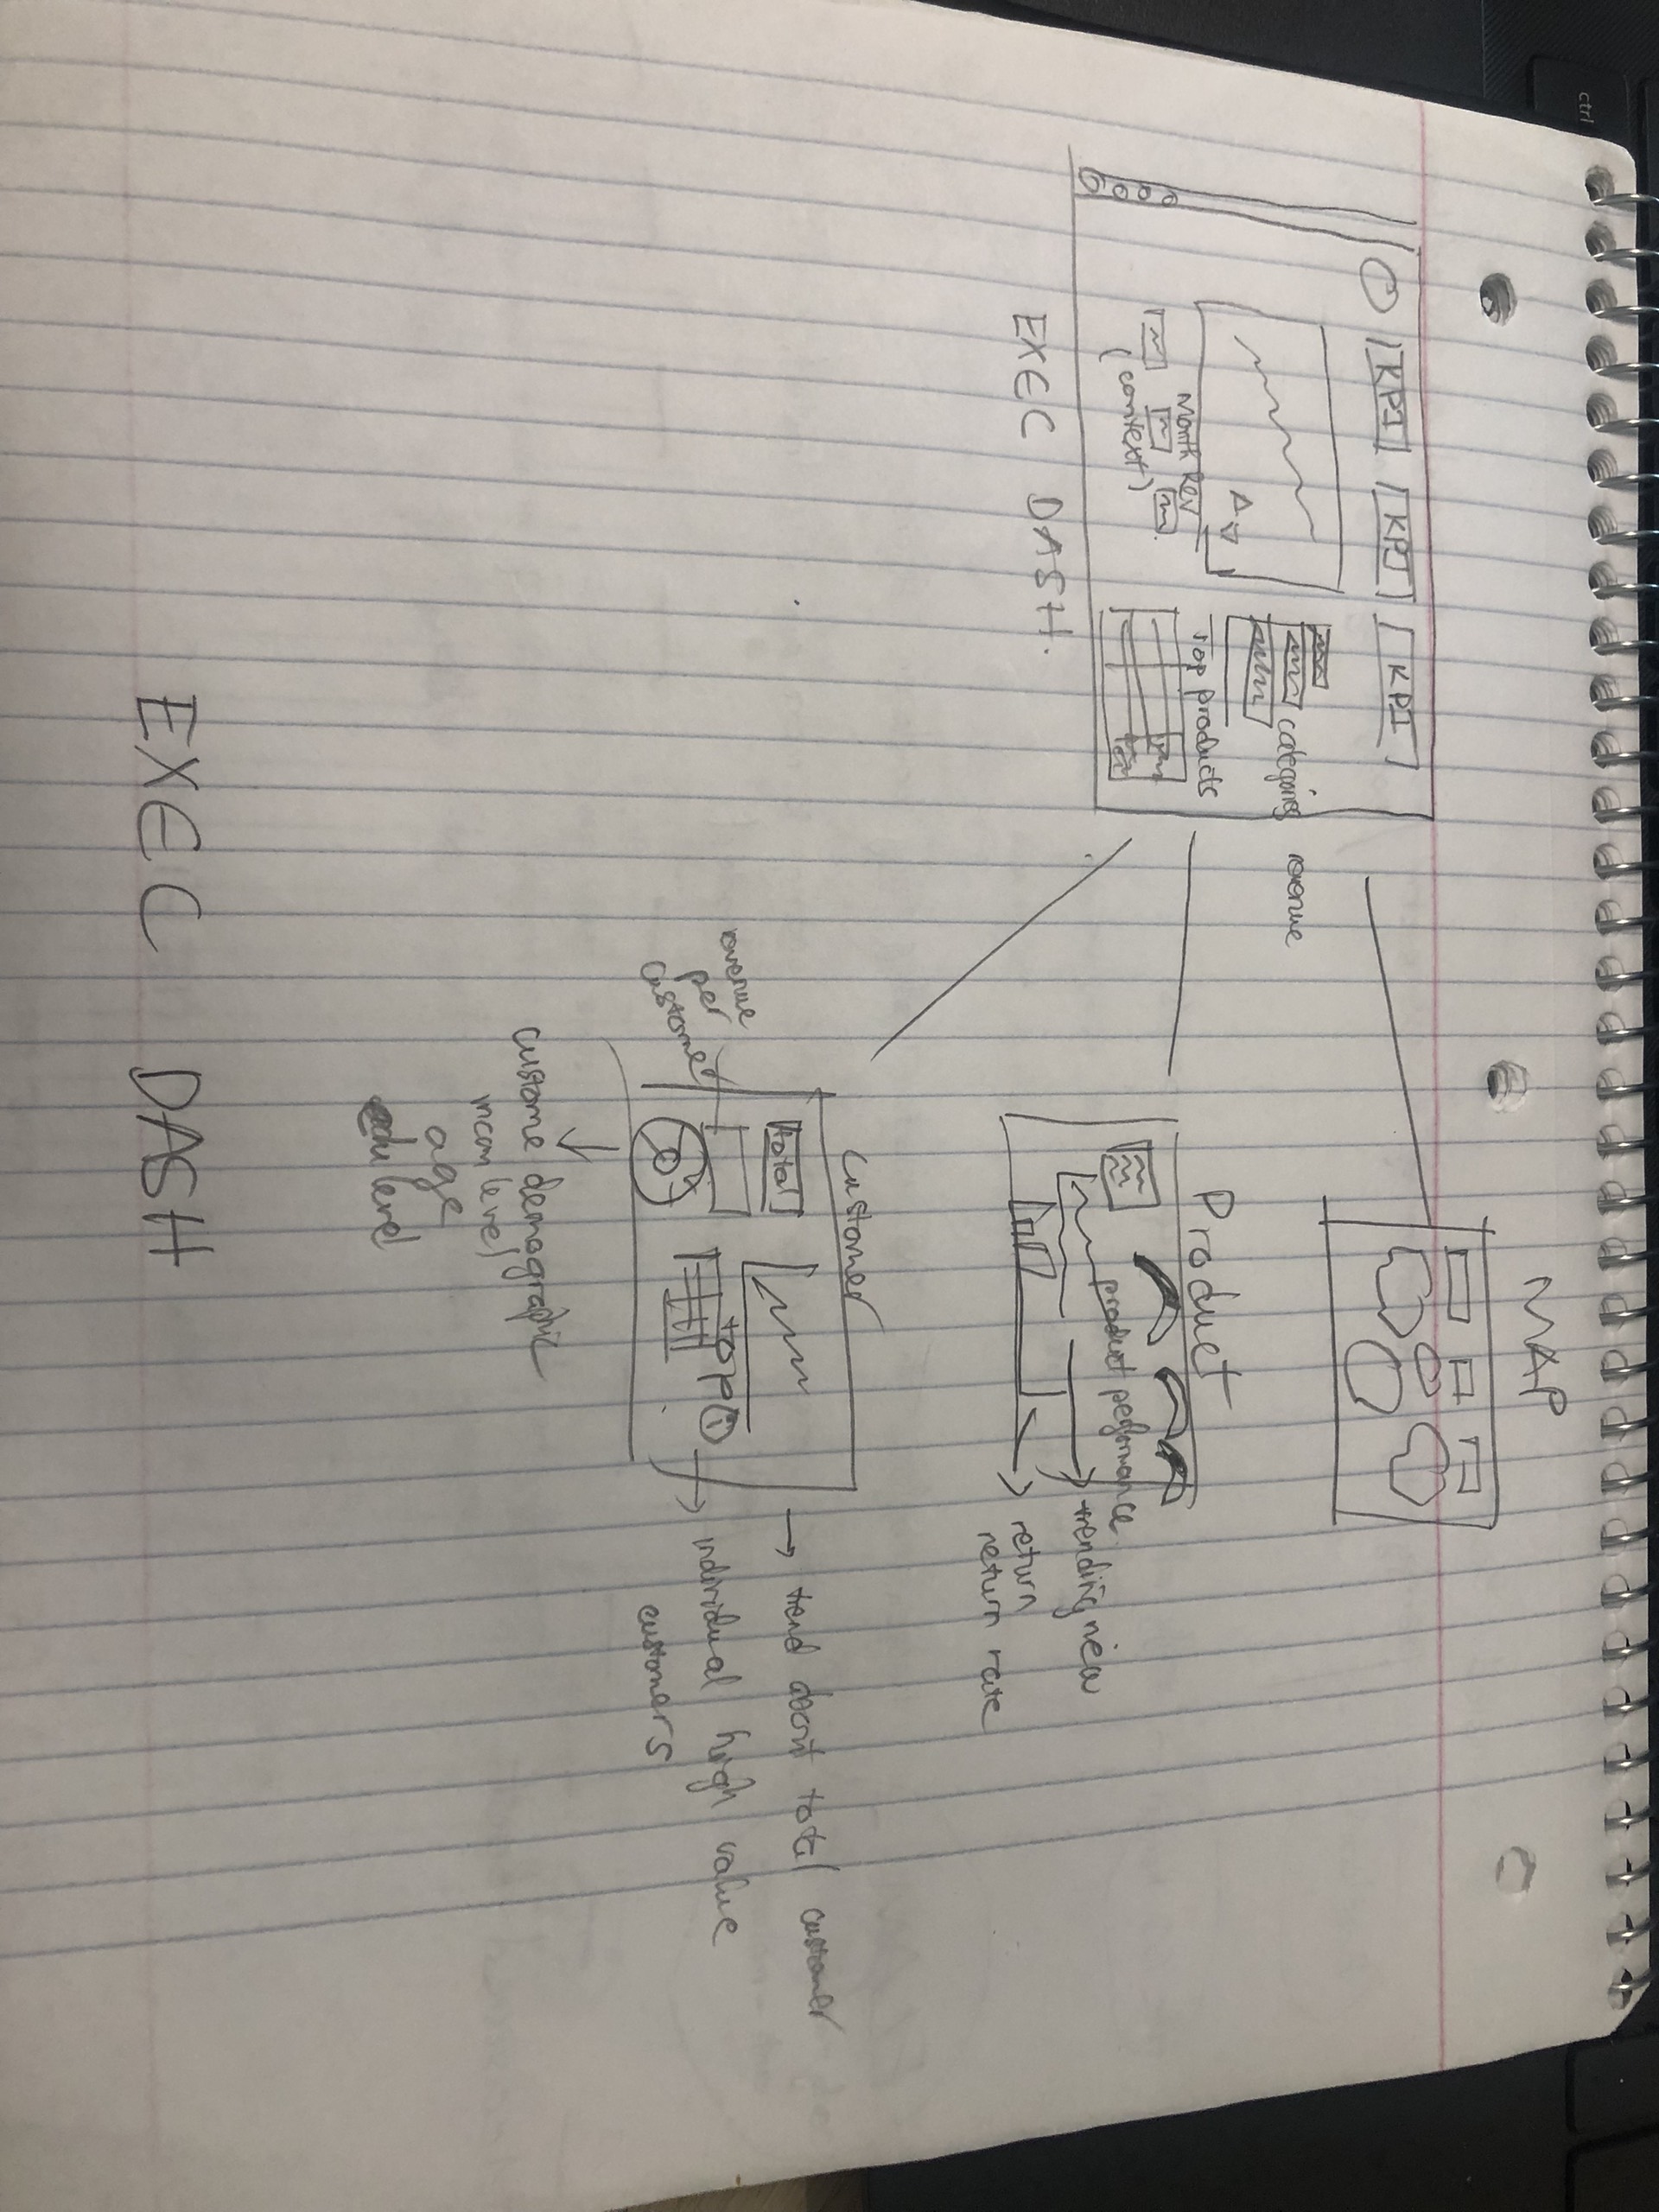 ctrl
KPI KPI KPI
Month Rev
(context)
Top products
EXEC DASH.
revenue
MAP
Product
product performance
trending new
return
return rate
Customer
total
top
1
revenue
per
customer
trend about total customer
individual high value
customers
custome demographic
incom level
age
edu level
EXEC DASH